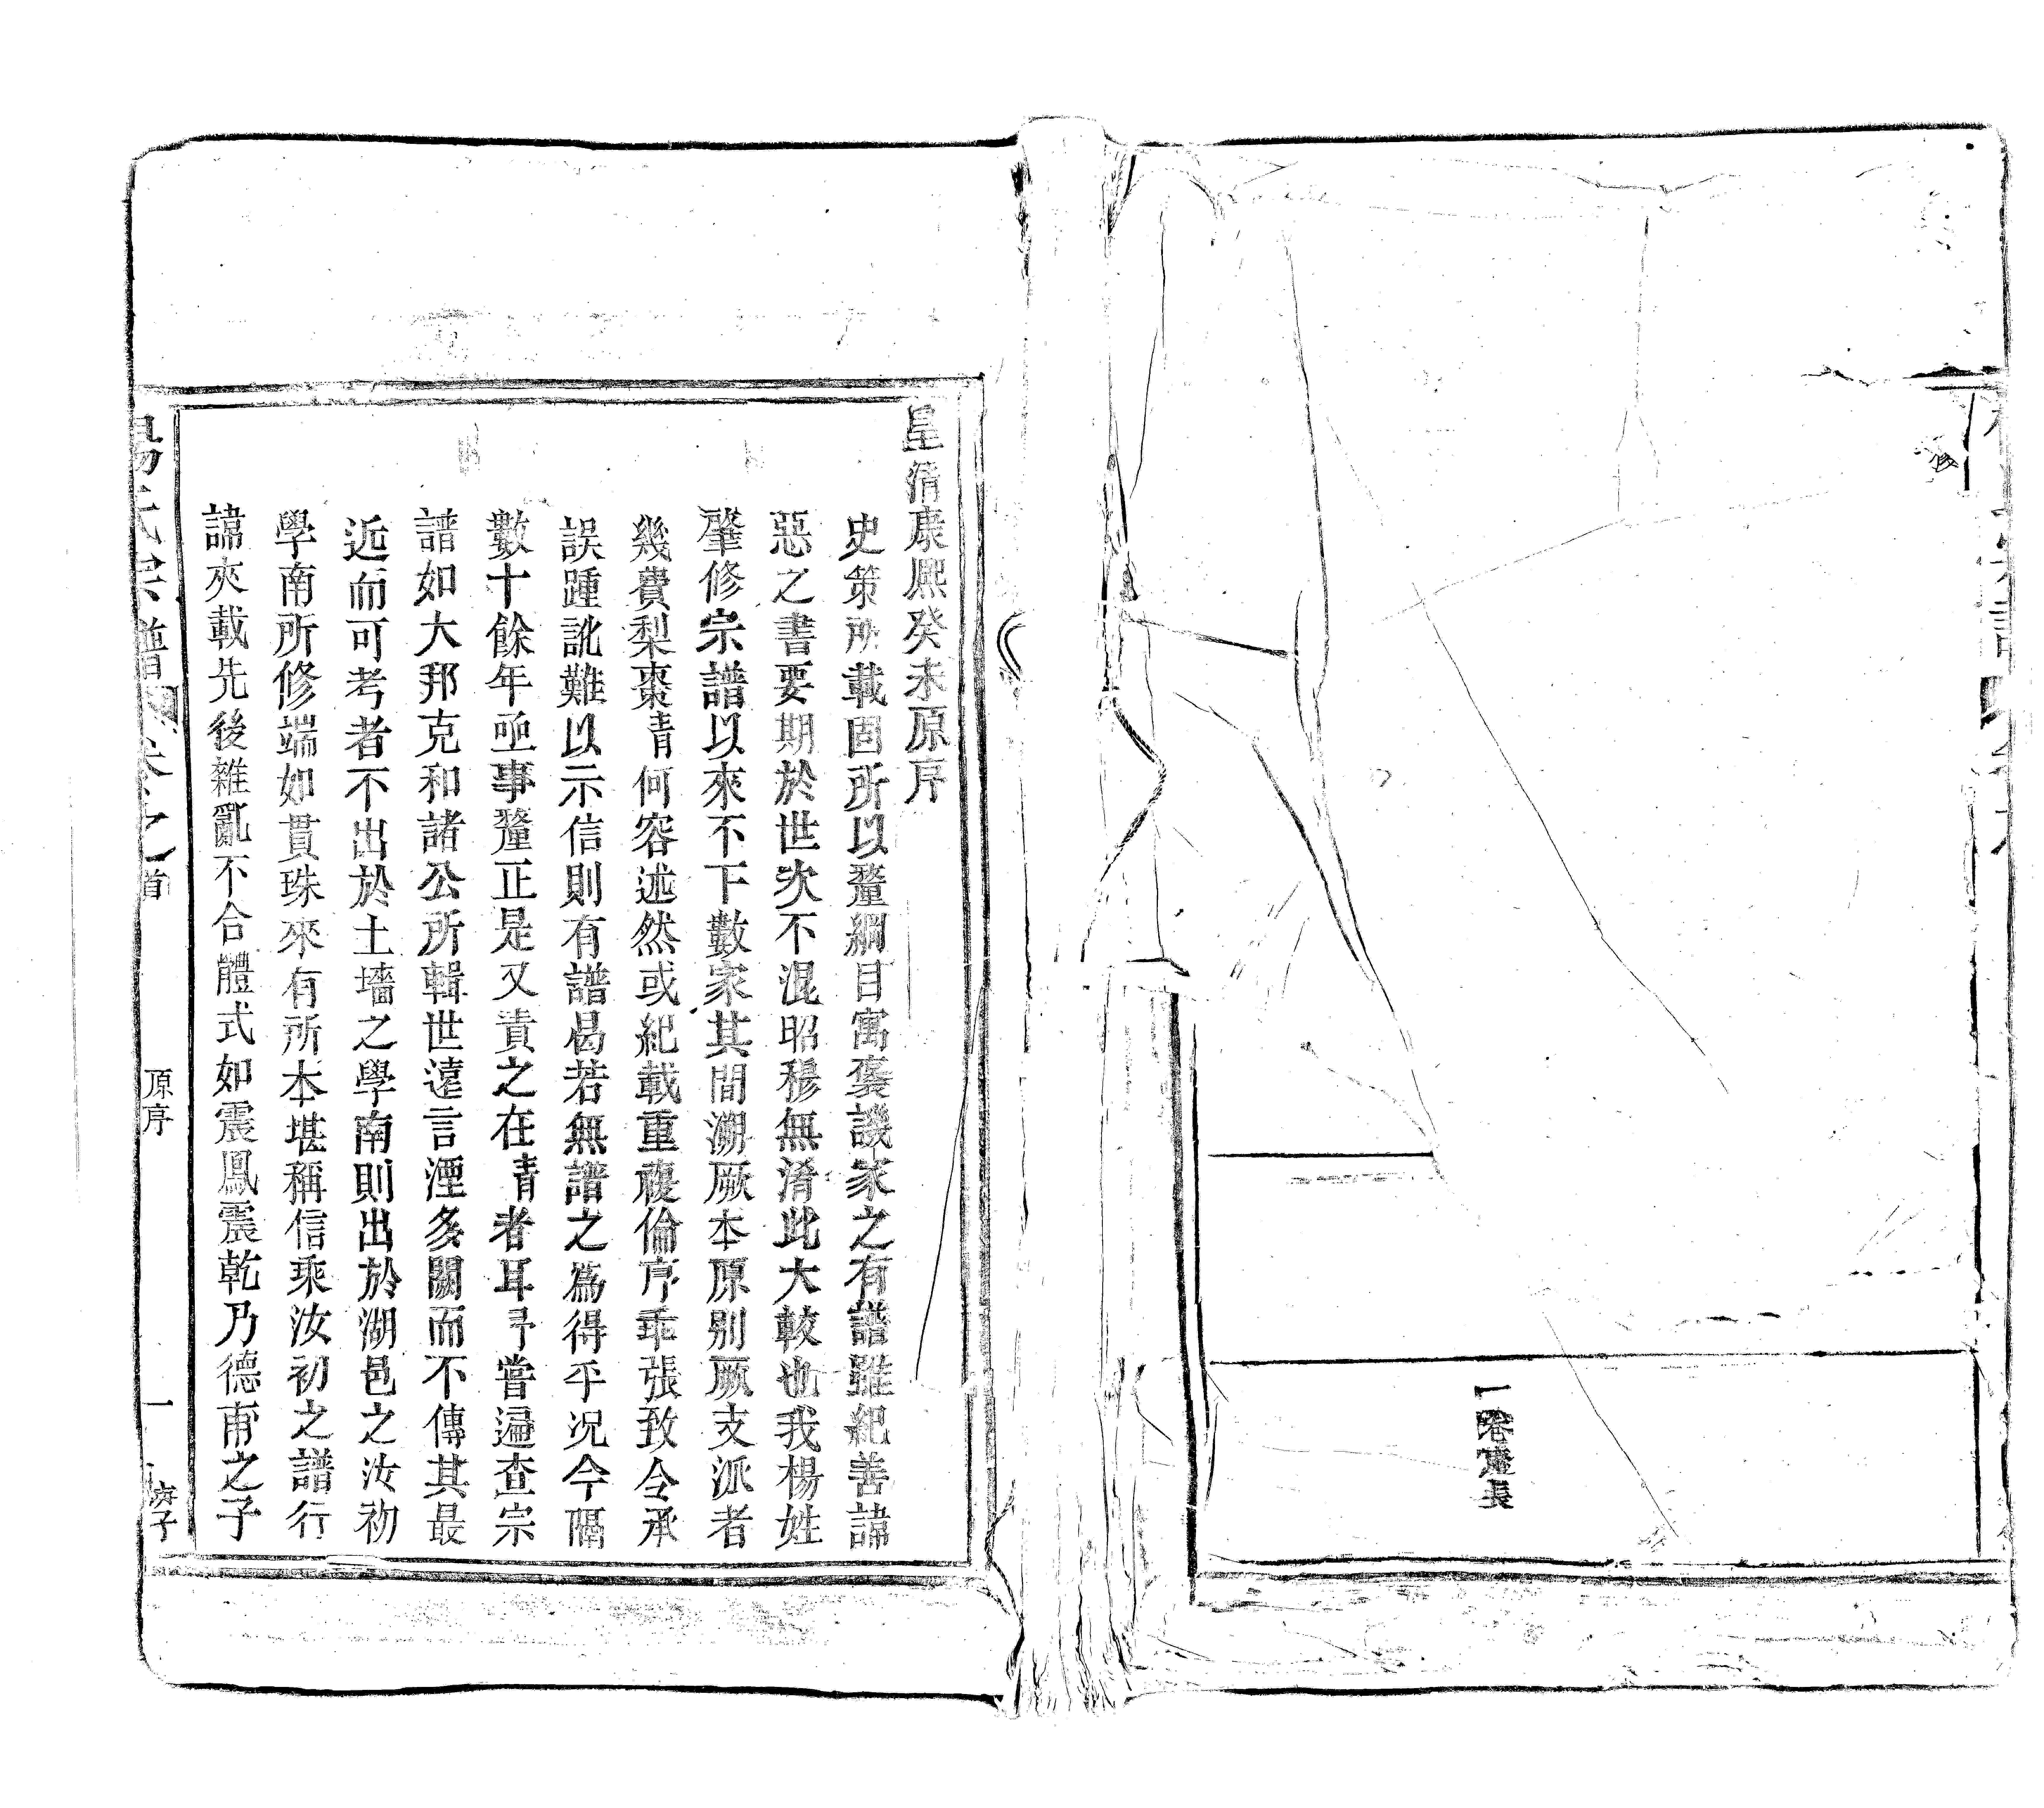 一卷遷長
皇清康熙癸未原序
史策所載固所以釐綱目寓褒譏家之有譜雖紀善諱
惡之書要期於世次不混昭穆無淆此大較也我楊姓
肇修宗譜以來不下數家其間溯厥本原别厥支派者
幾費梨棗青何容述然或紀載重複倫序乖張致令承
誤踵訛難以示信則有譜曷若無譜之爲得乎况今隔
數十餘年亟事釐正是又責之在青者耳予嘗遍查宗
譜如大邦克和諸公所輯世遠言湮多闕而不傳其最
近而可考者不出於土墻之學南則出於湖邑之汝初
學南所修端如貫珠來有所本堪稱信乘汝初之譜行
諱夾載先後雜亂不合體式如震鳳震乾乃德甫之子
楊氏宗譜 卷之首 原序 一